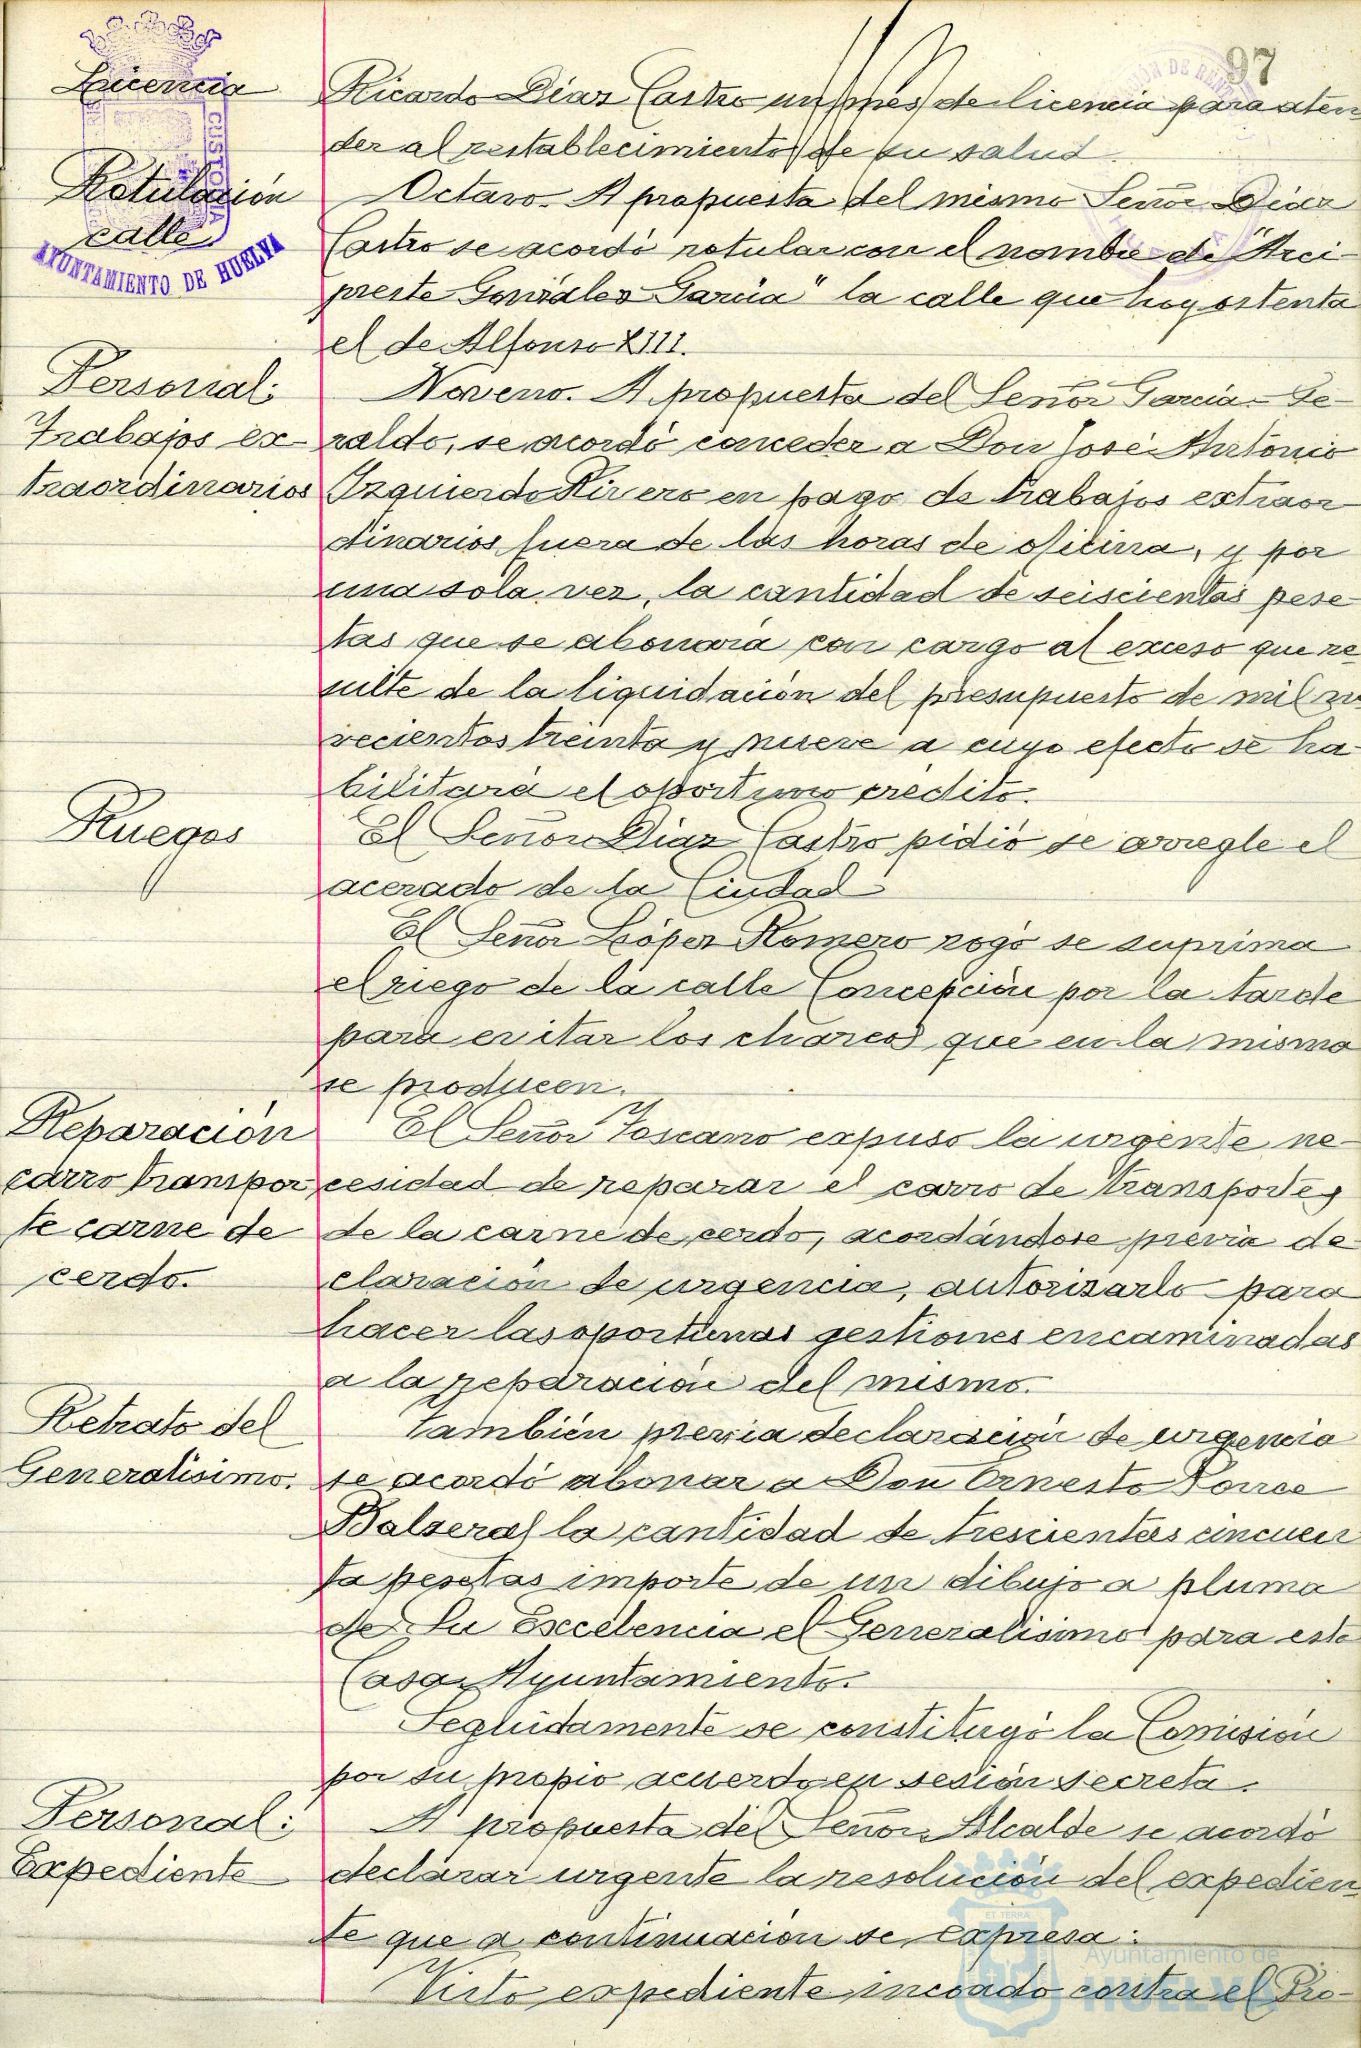 97
Licencia
Ricardo Díaz Castro un mes de licencia para aten
der al restablecimiento de su salud.
Rotulación
calle
AYUNTAMIENTO DE HUELVA
CUSTODIA
Octavo. A propuesta del mismo Señor Díaz
Castro se acordó rotular con el nombre de "Arci-
preste González García" la calle que hoy ostenta
el de Alfonso XIII.
Personal:
Trabajos ex-
traordinarios
Noveno. A propuesta del Señor García-Ge-
raldo, se acordó conceder a Don José Antonio
Izquierdo Rivero en pago de trabajos extraor
dinarios fuera de las horas de oficina, y por
una sola vez, la cantidad de seiscientas pese-
tas que se abonará con cargo al exceso que re
sulte de la liquidación del presupuesto de mil no
vecientos treinta y nueve a cuyo efecto se ha-
bilitará el oportuno crédito.
Ruegos
El Señor Díaz Castro pidió se arregle el
acerado de la Ciudad
El Señor López Romero rogó se suprima
el riego de la calle Concepción por la tarde
para evitar los charcos que en la misma
se producen.
Reparación
carro transpor
te carne de
cerdo.
El Señor Toscano expuso la urgente ne-
cesidad de reparar el carro de transporte
de la carne de cerdo, acordándose previa de
claración de urgencia, autorizarlo para
hacer las oportunas gestiones encaminadas
a la reparación del mismo.
Retrato del
Generalísimo.
También previa declaración de urgencia
se acordó abonar a Don Ernesto Ponce
Balsera la cantidad de trescientas cincuen
ta pesetas importe de un dibujo a pluma
de Su Excelencia el Generalísimo para esta
Casa Ayuntamiento.
Seguidamente se constituyó la Comisión
por su propio acuerdo en sesión secreta.
Personal:
Expediente
A propuesta del Señor Alcalde se acordó
declarar urgente la resolución del expedien
te que a continuación se expresa:
Visto expediente incoado contra el Pro-
Ayuntamiento de
HUELVA